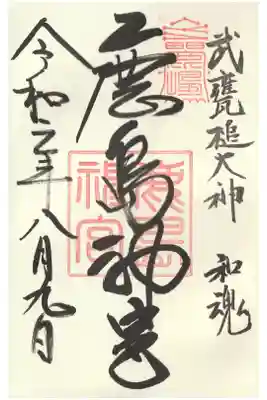 武甕槌大神 和魂
鹿島神宮
鹿島
神宮
令和二年八月九日